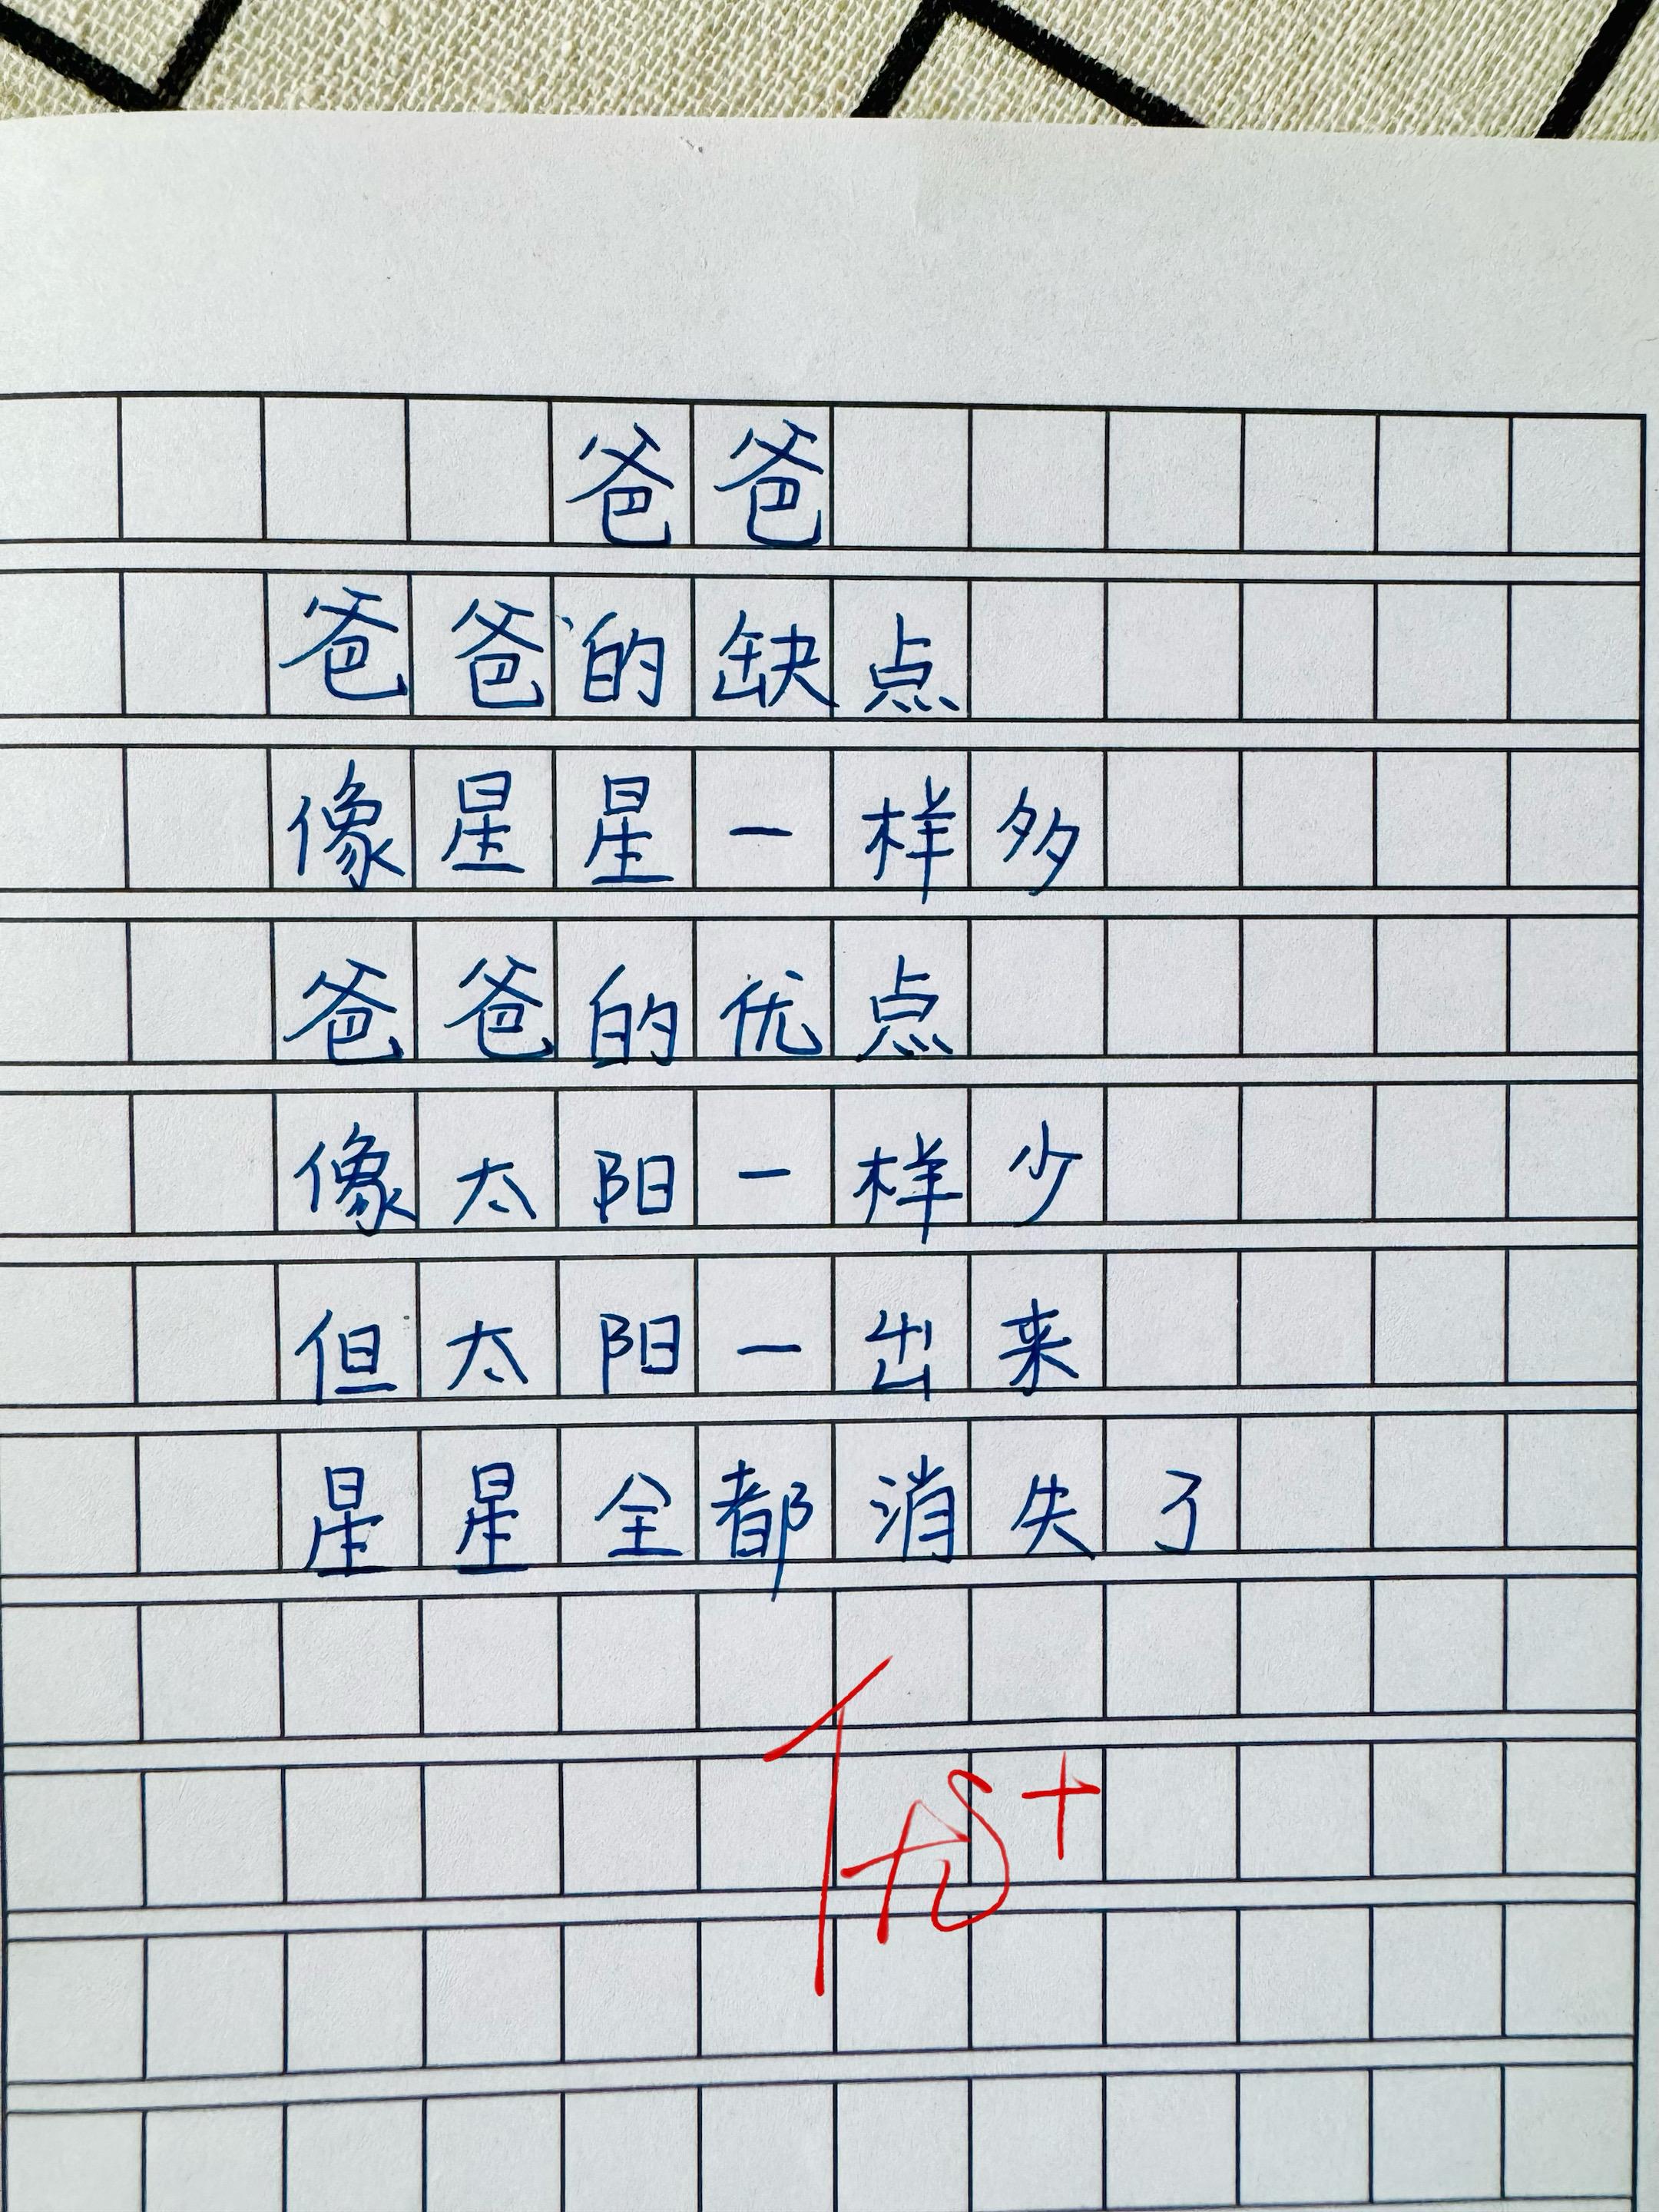 爸爸
爸爸的缺点
像星星一样多
爸爸的优点
像太阳一样少
但太阳一出来
星星全都消失了
优+